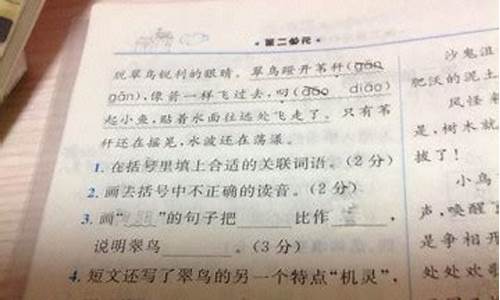 脱翠鸟锐利的眼睛。翠鸟蹬开苇秆(gǎn
gān),像箭一样飞过去,叼(dāo diāo)
起小鱼,贴着水面往远处飞走了。只有苇
秆还在摇晃,水波还在荡漾。
1. 在括号里填上合适的关联词语。(2分)
2. 画去括号中不正确的读音。(2分)
3. 画" "的句子把 比作 ,
说明翠鸟 。(3分)
4. 短文还写了翠鸟的另一个特点"机灵",
沙鬼诅
肥沃的泥土
风怪
是,树木就
拔了!
小鸟
声,唤醒
是争相开
处处欢